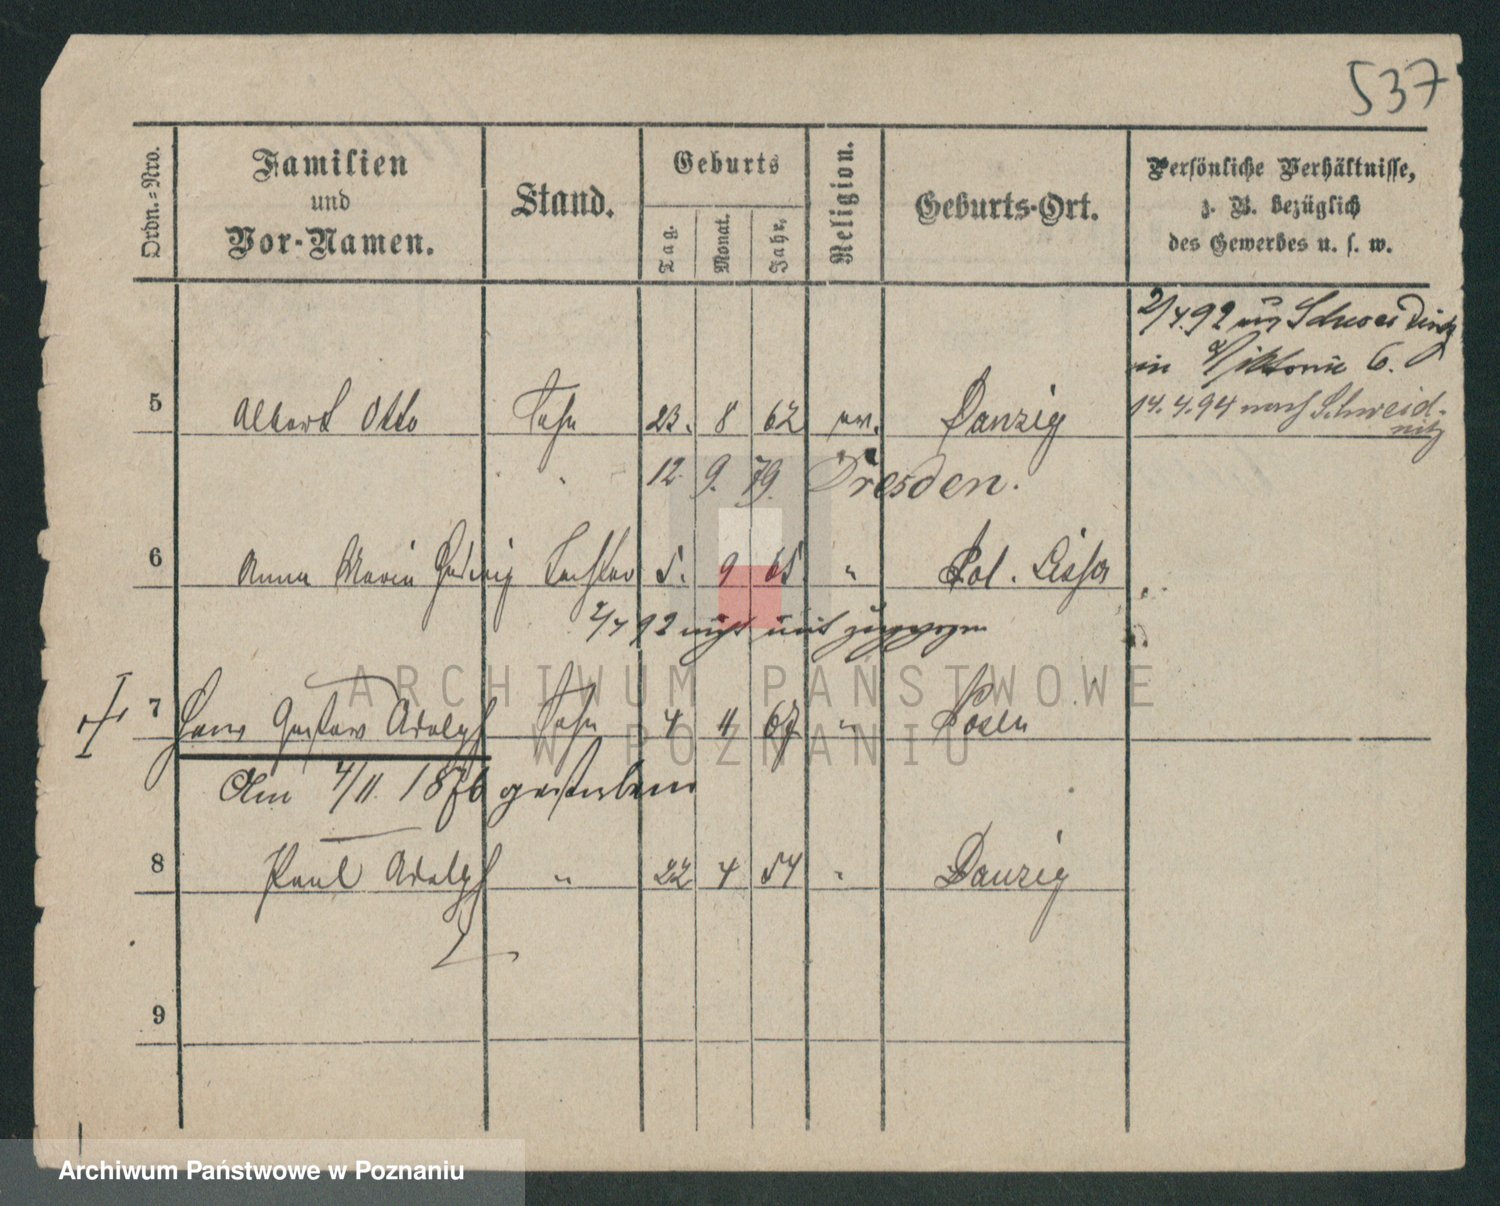 537
Ordn.-Nro. Familien und Vor-Namen. Stand. Geburts Tag. Monat. Jahr. Religion. Geburts-Ort. Persönliche Verhältnisse, z. B. bezüglich des Gewerbes u. s. w.
2/7 92 aus
in Viktoria 6.
14. 4. 94 nach Schweidnitz
5 Albert Otto Sohn 23. 8 62 ev. Danzig
12. 9. 79. Dresden.
6 Anna Maria Hedwig Tochter 5. 9 65 " Pol. Lissa
2/7 92 nicht mit zugezogen
7 Hans Gustav Adolph Sohn 4 11 67 " Posen
Am 4/11. 1876 gestorben
8 Paul Adolph " 22 4 54 " Danzig
9
ARCHIWUM PAŃSTWOWE
W POZNANIU
Archiwum Państwowe w Poznaniu